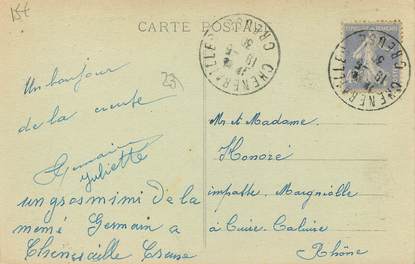 15f
CARTE POSTALE
CHENERAILLES
CREUSE
23
Un bonjour
de la creuse
Germain
Juliette
un gros mimi de la
memé Germain a
Cheneraille Creuse
Mr et Madame
Honoré
impasse Margniolle
a Cuire-Caluire
Rhône